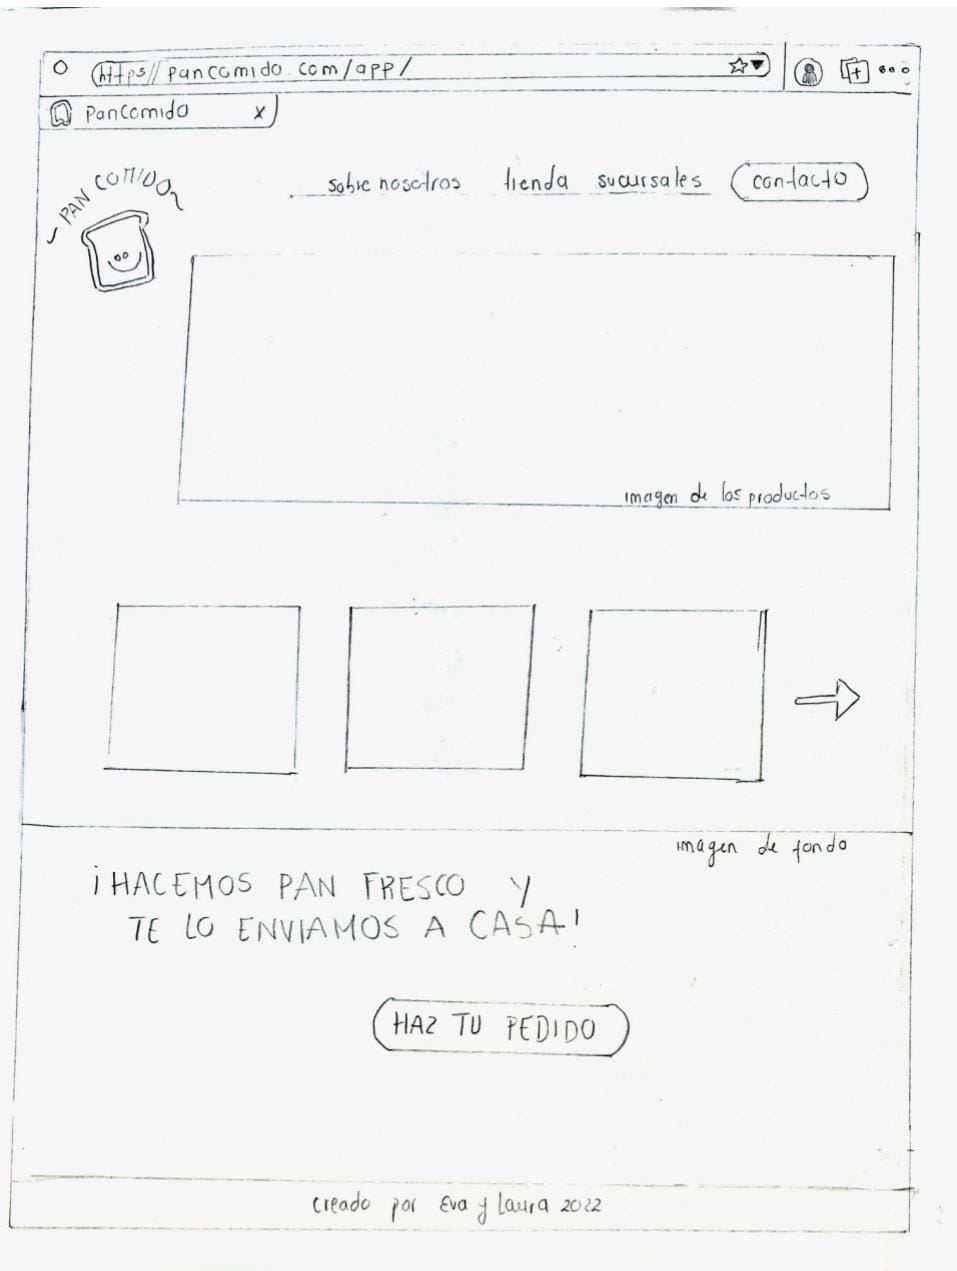 https// pancomido.com/app/
Pancomido x
PAN COMIDO
sobre nosotros tienda sucursales contacto
imagen de los productos
imagen de fondo
¡HACEMOS PAN FRESCO Y
TE LO ENVIAMOS A CASA!
HAZ TU PEDIDO
creado por Eva y Laura 2022